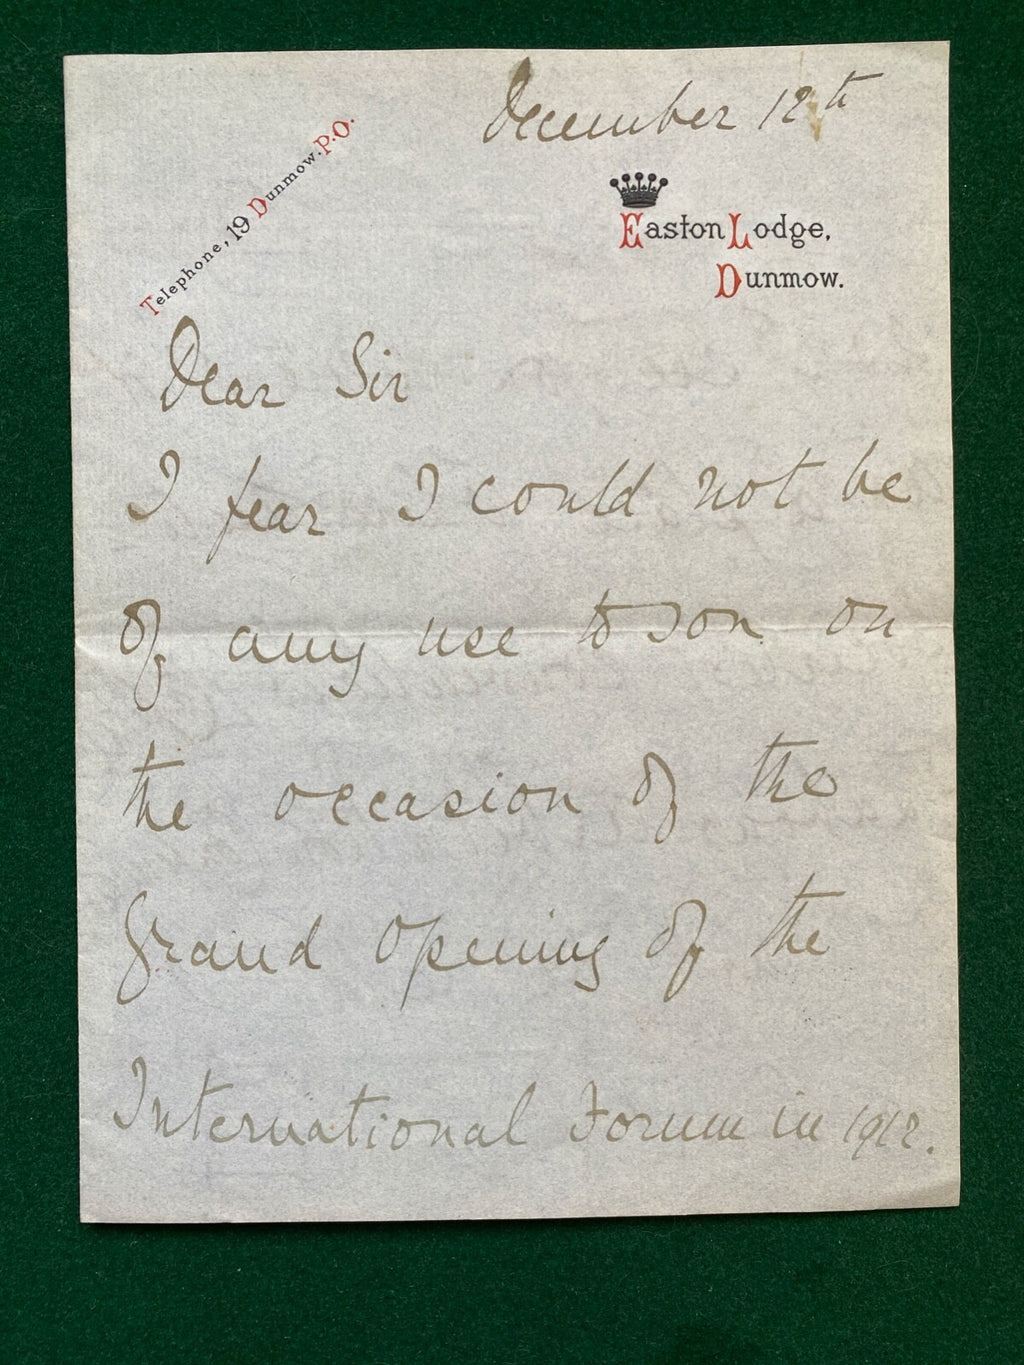 December 12th
Telephone, 19 Dunmow. P.O.
Easton Lodge,
Dunmow.
Dear Sir
I fear I could not be
of any use to you on
the occasion of the
grand opening of the
International Forum in 1912.